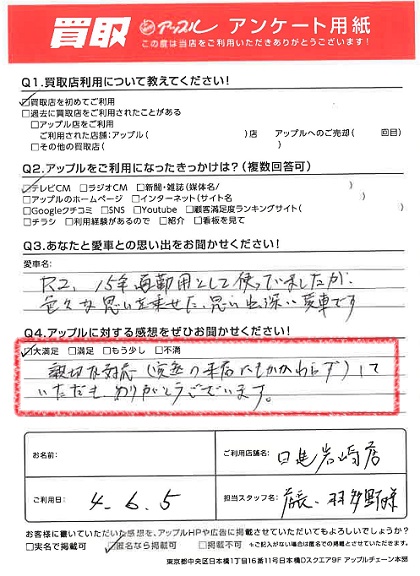 買取 アップル アンケート用紙
この度は当店をご利用いただきありがとうございます!
Q1.買取店利用について教えてください!
☑買取店を初めてご利用
□過去に買取店をご利用されたことがある
□アップル店をご利用
ご利用された店舗:アップル( )店 アップルへのご売却( 回目)
□その他の買取店( )
Q2.アップルをご利用になったきっかけは?(複数回答可)
☑テレビCM □ラジオCM □新聞・雑誌(媒体名/ )
□アップルのホームページ □インターネット(サイト名 )
□Googleクチコミ □SNS □Youtube □顧客満足度ランキングサイト( )
□チラシ □利用経験があるので □紹介 □看板を見て
Q3.あなたと愛車との思い出をお聞かせください!
愛車名:
R2、15年通勤用として使っていましたが、
色々な思いを乗せた、思い出深い愛車です
Q4.アップルに対する感想をぜひお聞かせください!
☑大満足 □満足 □もう少し □不満
親切な対応(突然の来店にもかかわらず)して
いただき ありがとうございます。
お名前:
ご利用店舗名: 日進岩崎店
ご利用日: 4.6.5
担当スタッフ名: 店長、羽多野様
お客様に書いていただいた感想を、アップルHPや広告に掲載させていただいてもよろしいでしょうか?
□実名で掲載可 ☑匿名なら掲載可 □掲載不可 ※ご記入がない場合は匿名での掲載とさせていただきます。
東京都中央区日本橋1丁目16番11号日本橋Dスクエア9F アップルチェーン本部